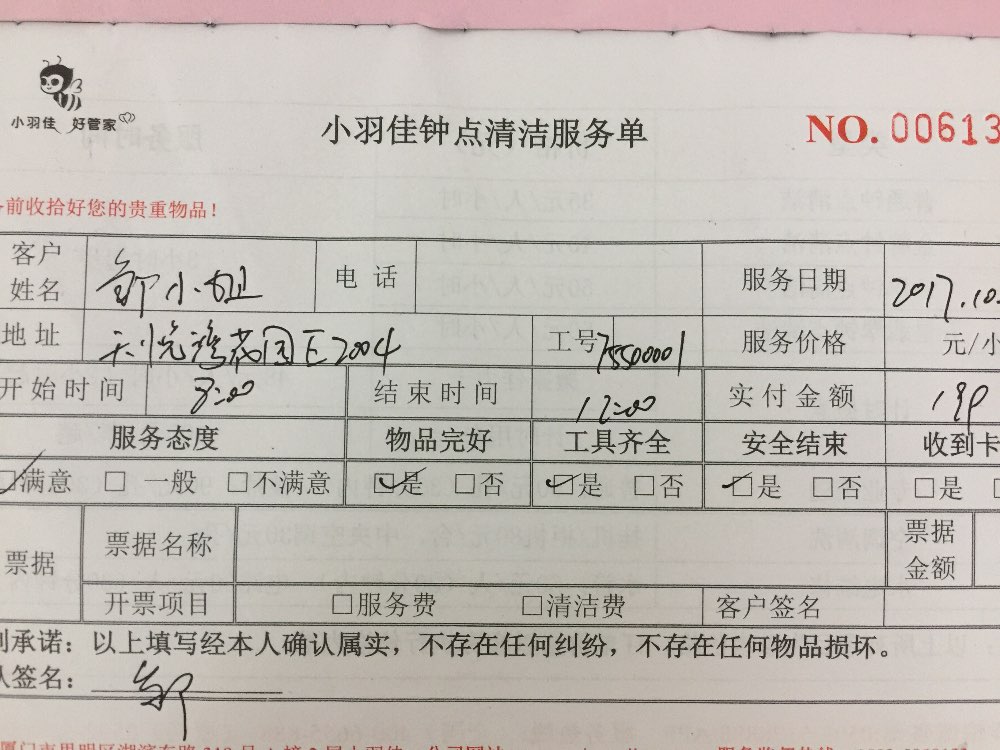 小羽佳 好管家
小羽佳钟点清洁服务单
NO. 00613
前收拾好您的贵重物品！
客户姓名 邹小姐 电话 服务日期 2017.10.
地址 工号 7550001 服务价格 元/小
开始时间 8:00 结束时间 12:00 实付金额
服务态度 物品完好 工具齐全 安全结束 收到卡
☑满意 □一般 □不满意 ☑是 □否 ☑是 □否 ☑是 □否 □是
票据 票据名称 票据金额
开票项目 □服务费 □清洁费 客户签名
承诺：以上填写经本人确认属实，不存在任何纠纷，不存在任何物品损坏。
人签名： 邹